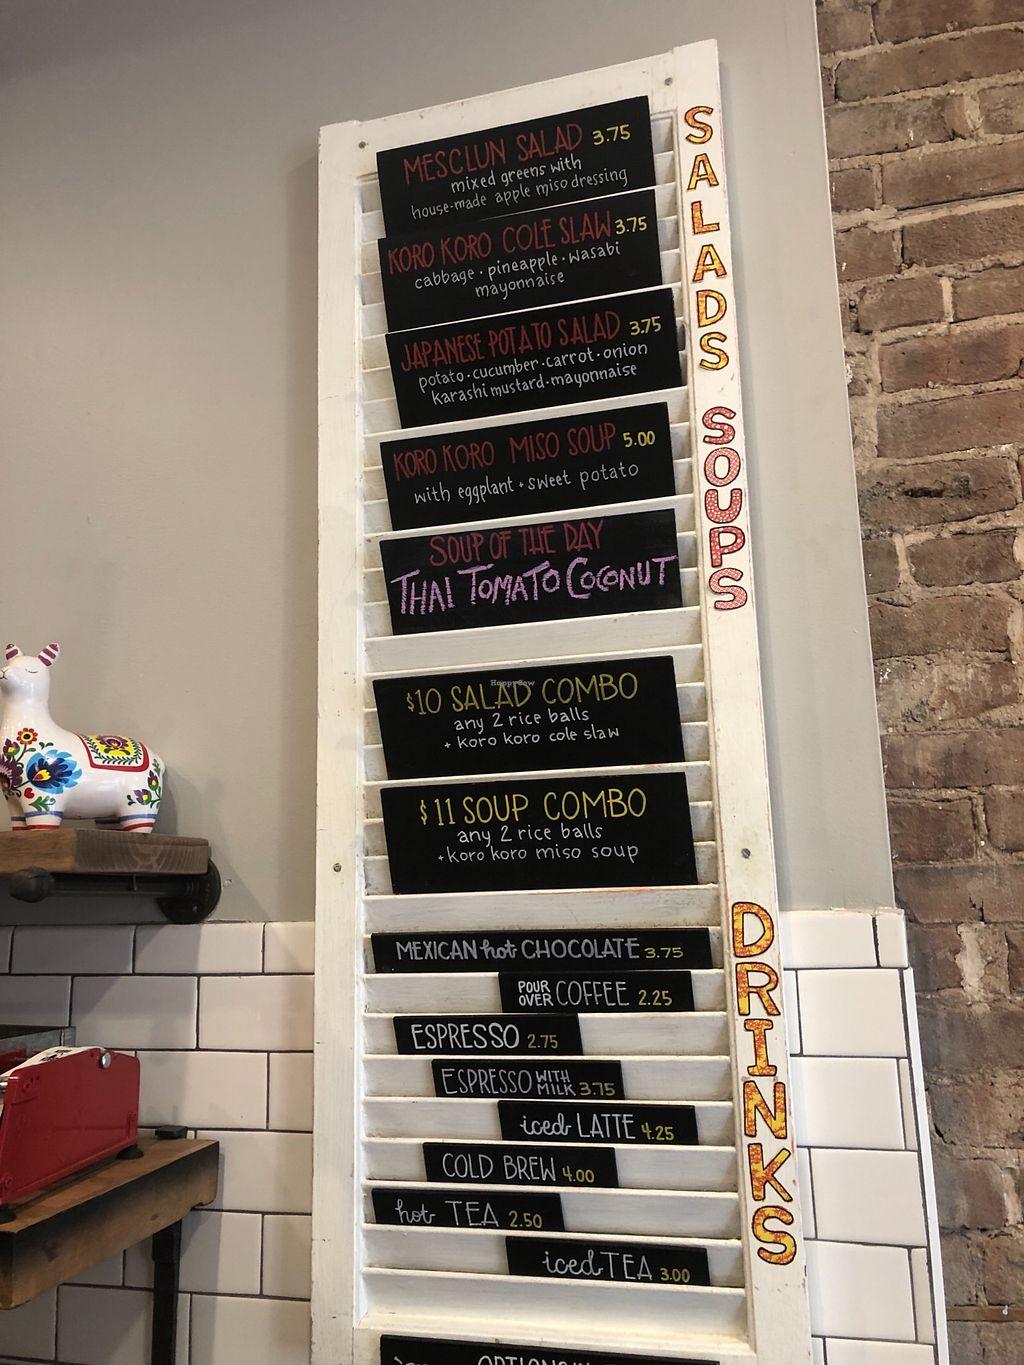 MESCLUN SALAD 3.75
mixed greens with
house-made apple miso dressing
KORO KORO COLE SLAW 3.75
cabbage · pineapple · wasabi
mayonnaise
JAPANESE POTATO SALAD 3.75
potato · cucumber · carrot · onion
karashi mustard · mayonnaise
KORO KORO MISO SOUP 5.00
with eggplant + sweet potato
SOUP OF THE DAY
THAI TOMATO COCONUT
HappyCow
$10 SALAD COMBO
any 2 rice balls
+ koro koro cole slaw
$11 SOUP COMBO
any 2 rice balls
+ koro koro miso soup
MEXICAN hot CHOCOLATE 3.75
POUR OVER COFFEE 2.25
ESPRESSO 2.75
ESPRESSO WITH MILK 3.75
iced LATTE 4.25
COLD BREW 4.00
hot TEA 2.50
iced TEA 3.00
SALADS
SOUPS
DRINKS